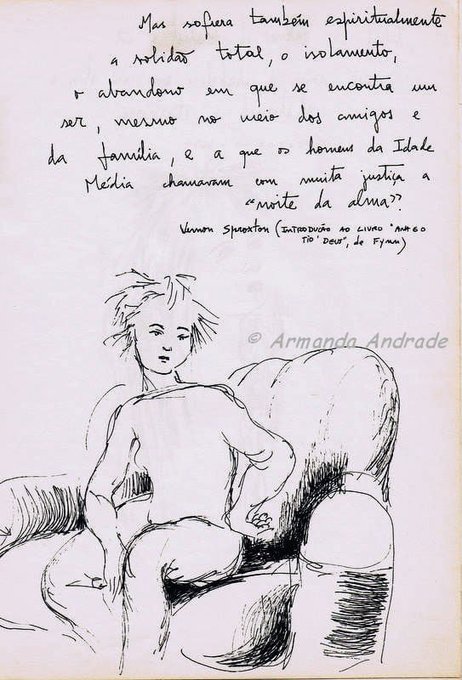 Mas sofrera também espiritualmente
a solidão total, o isolamento,
o abandono em que se encontra um
ser, mesmo no meio dos amigos e
da família, e a que os homens da Idade
Média chamavam com muita justiça a
"noite da alma".
Vernon Sproxton (INTRODUÇÃO AO LIVRO "ANA E O
TIO' DEUS", de Fynn)
© Armanda Andrade